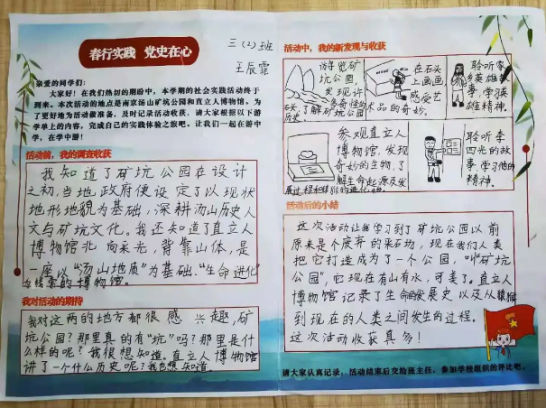 春行实践 党史在心
三(2)班
王辰霏
亲爱的同学们:
大家好!在我们热切的期盼中,本学期的社会实践活动终于
到来。本次活动的地点是南京汤山矿坑公园和直立人博物馆。为
了更好地为活动做准备,及时记录活动收获。请大家根据以下游
学单上的内容,完成自己的实践体验之旅吧。让我们一起在游中
学,在学中游!
活动前,我的调查收获
我知道了矿坑公园在设计
之初,当地政府便设定了以现状
地形地貌为基础,深耕汤山历史人
文与矿坑文化。我还知道了直立人
博物馆北向采光,背靠山体,是
一座以“汤山地质”为基础,“生命进化”
为线索的博物馆。
我对活动的期待
我对这两的地方都很感兴趣,矿
坑公园?那里真的有“坑”吗?那里是什
么样的呢?我很想知道。直立人博物馆
讲了一个什么历史呢?我也想知道。
活动中,我的新发现与收获
游览矿
坑公园,
发现许
多奇怪的
了解矿坑公园
在石头
上画画,
感受艺
术品的奇妙。
聆听家
乡英雄
事,学习英
雄精神。
参观直立人
博物馆,发现
奇妙的生物,了
解生命起源及发
展过程
聆听李
四光的故
事,学习他的
精神。
活动后的小结
这次活动让我学习到了矿坑公园以前
原来是个废弃的采石场,现在我们人类
把它打造成为了一个公园,叫“矿坑
公园”,它现在有山有水,可美了。直立人
博物馆记录了生命的发展史以及从猿猴
到现在的人类之间发生的过程。
这次活动收获真多!
请大家认真记录,活动结束后交给班主任,参加学校组织的评比吧。